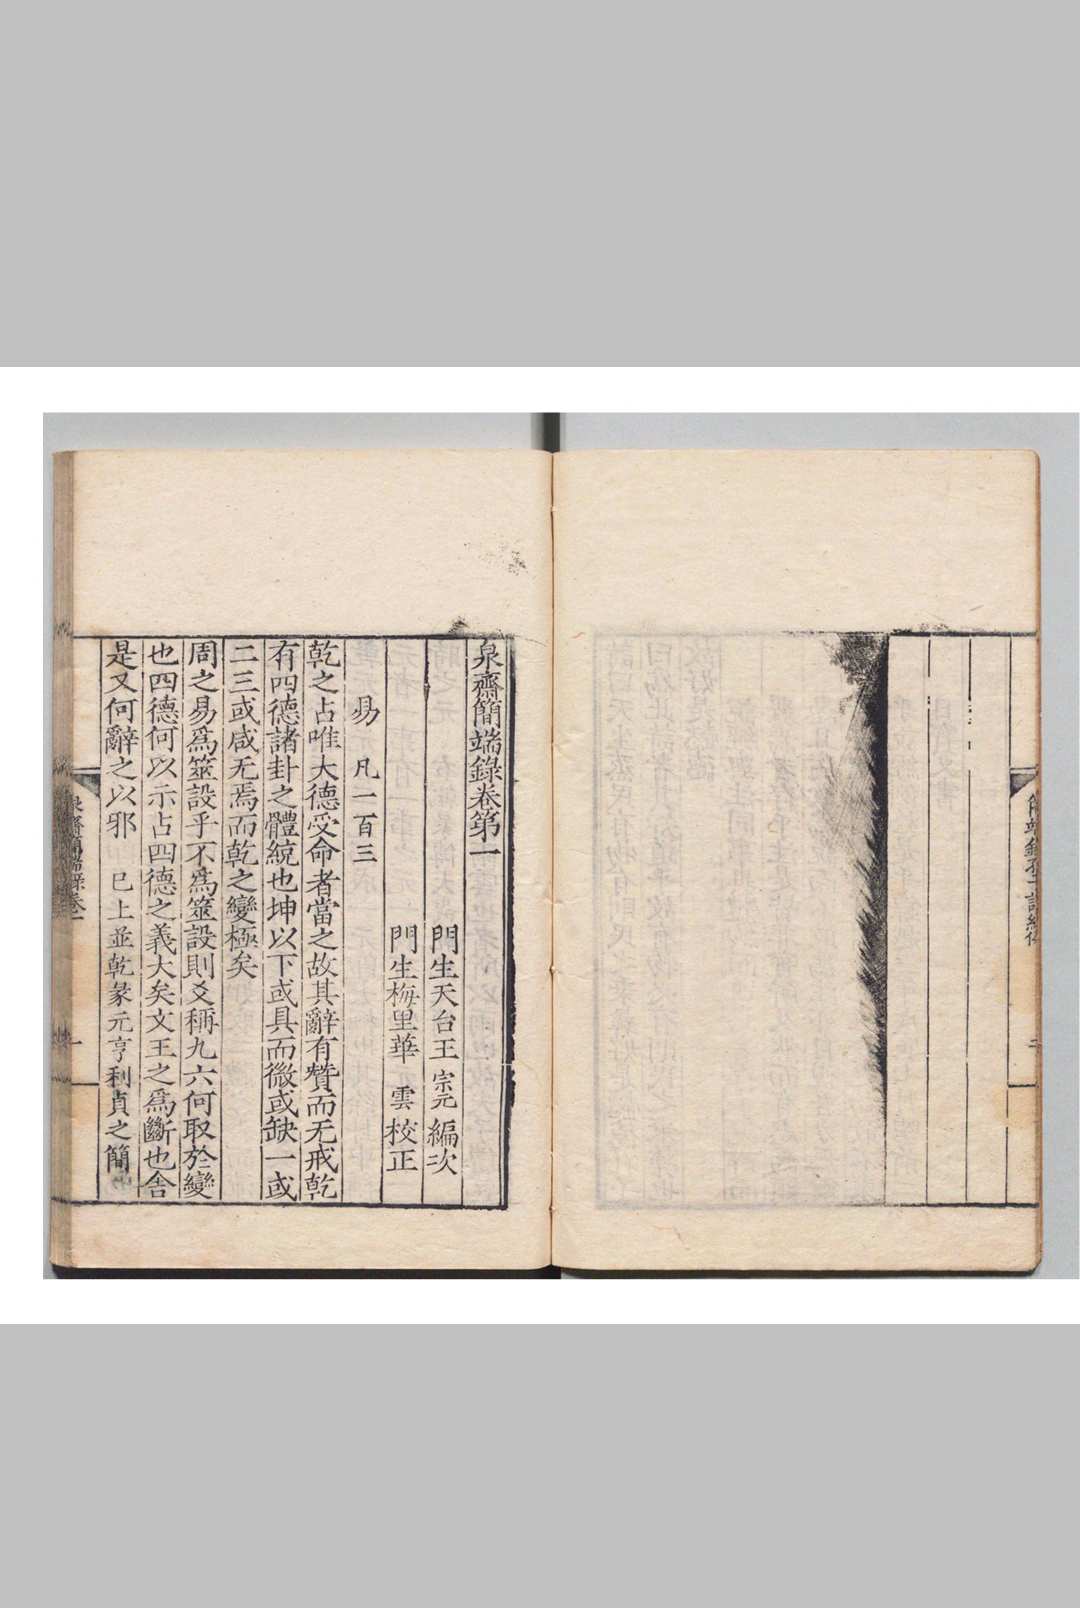 泉齋簡端錄卷第一
門生天台王宗元編次
門生梅里華雲校正
易凡一百三
乾之占唯大德受命者當之故其辭有贊而无戒乾
有四德諸卦之體統也坤以下或具而微或缺一或
二三或咸无焉而乾之變極矣
周之易爲筮設乎不爲筮設則爻稱九六何取於變
也四德何以示占四德之義大矣文王之爲斷也舍
是又何辭之以邪 已上並乾彖元亨利貞之簡